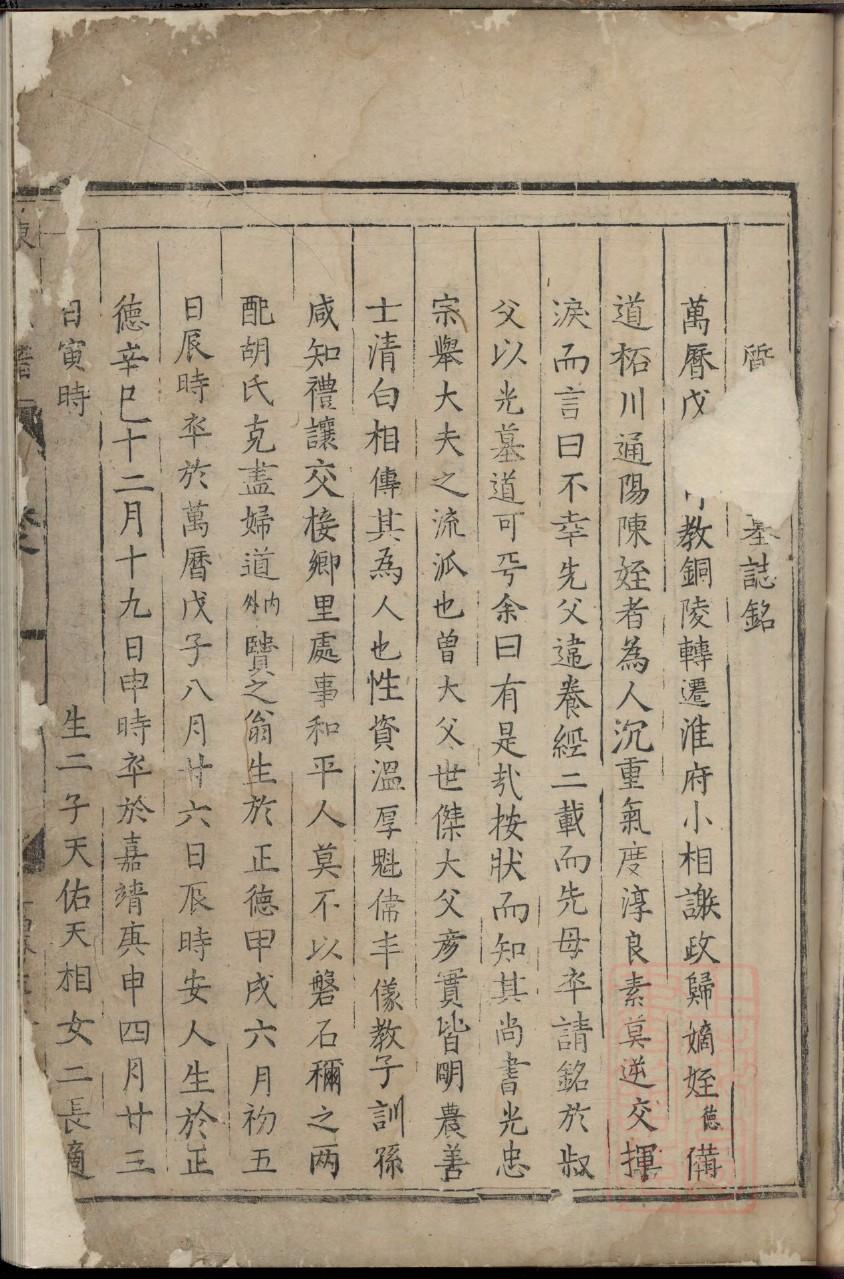 墓誌銘
萬曆戊教銅陵轉遷淮府小相謝政歸嫡姪德備
道柘川通陽陳姪者為人沉重氣度淳良素莫逆交揮
淚而言曰不幸先父違養經二載而先母卒請銘於叔
父以光墓道可乎余曰有是㢤按狀而知其尚書光忠
宗舉大夫之流派也曾大父世傑大父彦實皆明農善
士清白相傳其為人也性資溫厚魁偉丰儀教子訓孫
咸知禮讓交接鄉里處事和平人莫不以磐石稱之两
配胡氏克盡婦道内外賢之翁生於正德甲戌六月初五
日辰時卒於萬曆戊子八月廿六日辰時安人生於正
德辛巳十二月十九日申時卒於嘉靖庚申四月廿三
日寅時 生二子天佑天相女二長適